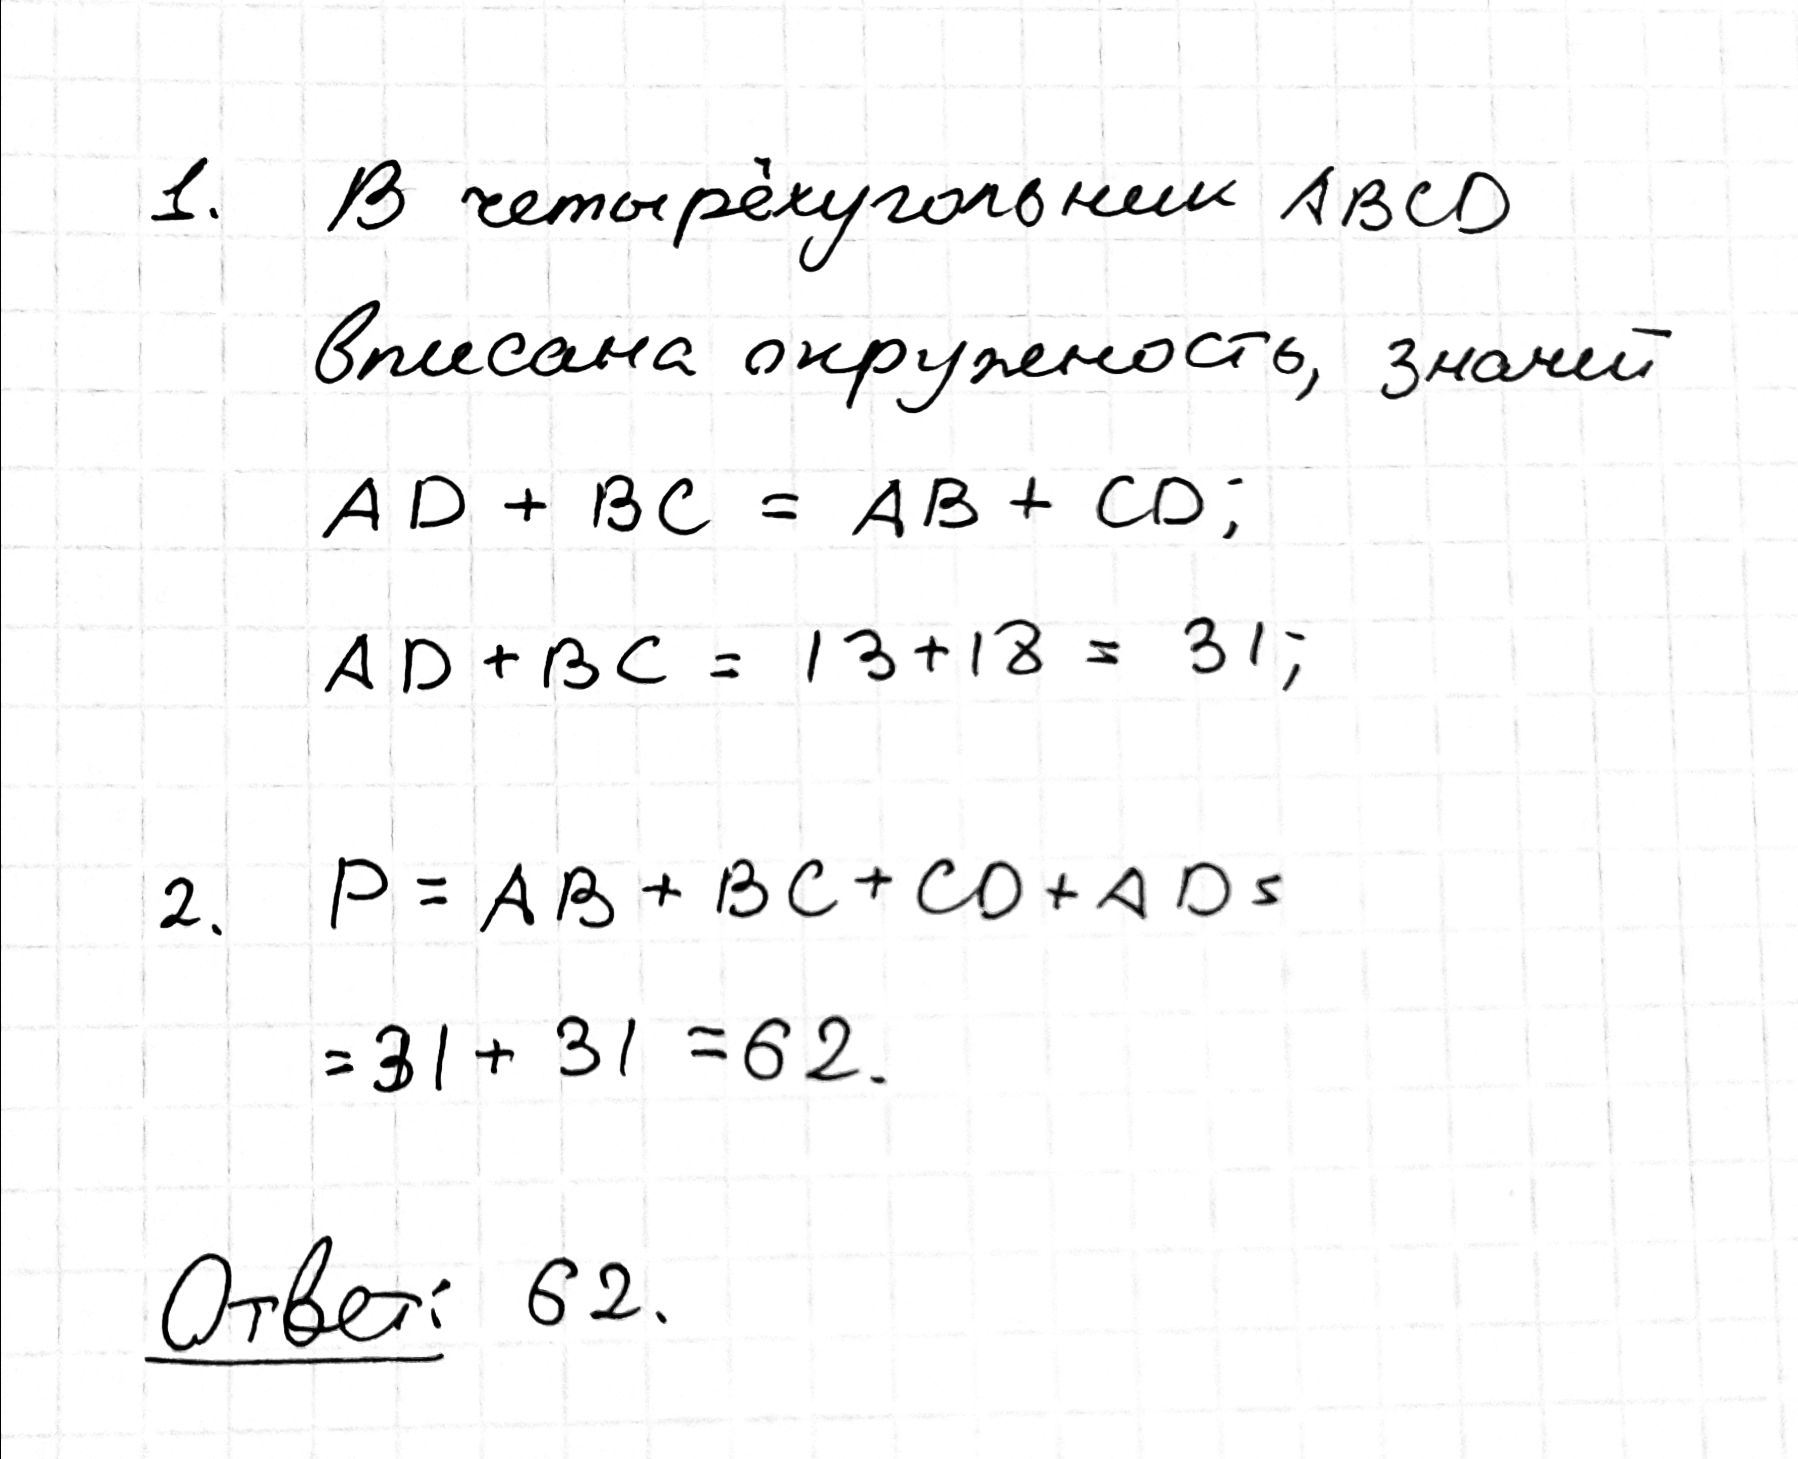 1. В четырёхугольник ABCD
вписана окружность, значит
AD + BC = AB + CD;
AD + BC = 13 + 18 = 31;
2. P = AB + BC + CD + AD =
= 31 + 31 = 62.
Ответ: 62.